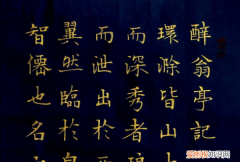 醉翁亭記
環滁皆山
而深秀者
而泄出於
翼然臨於
智僊也名